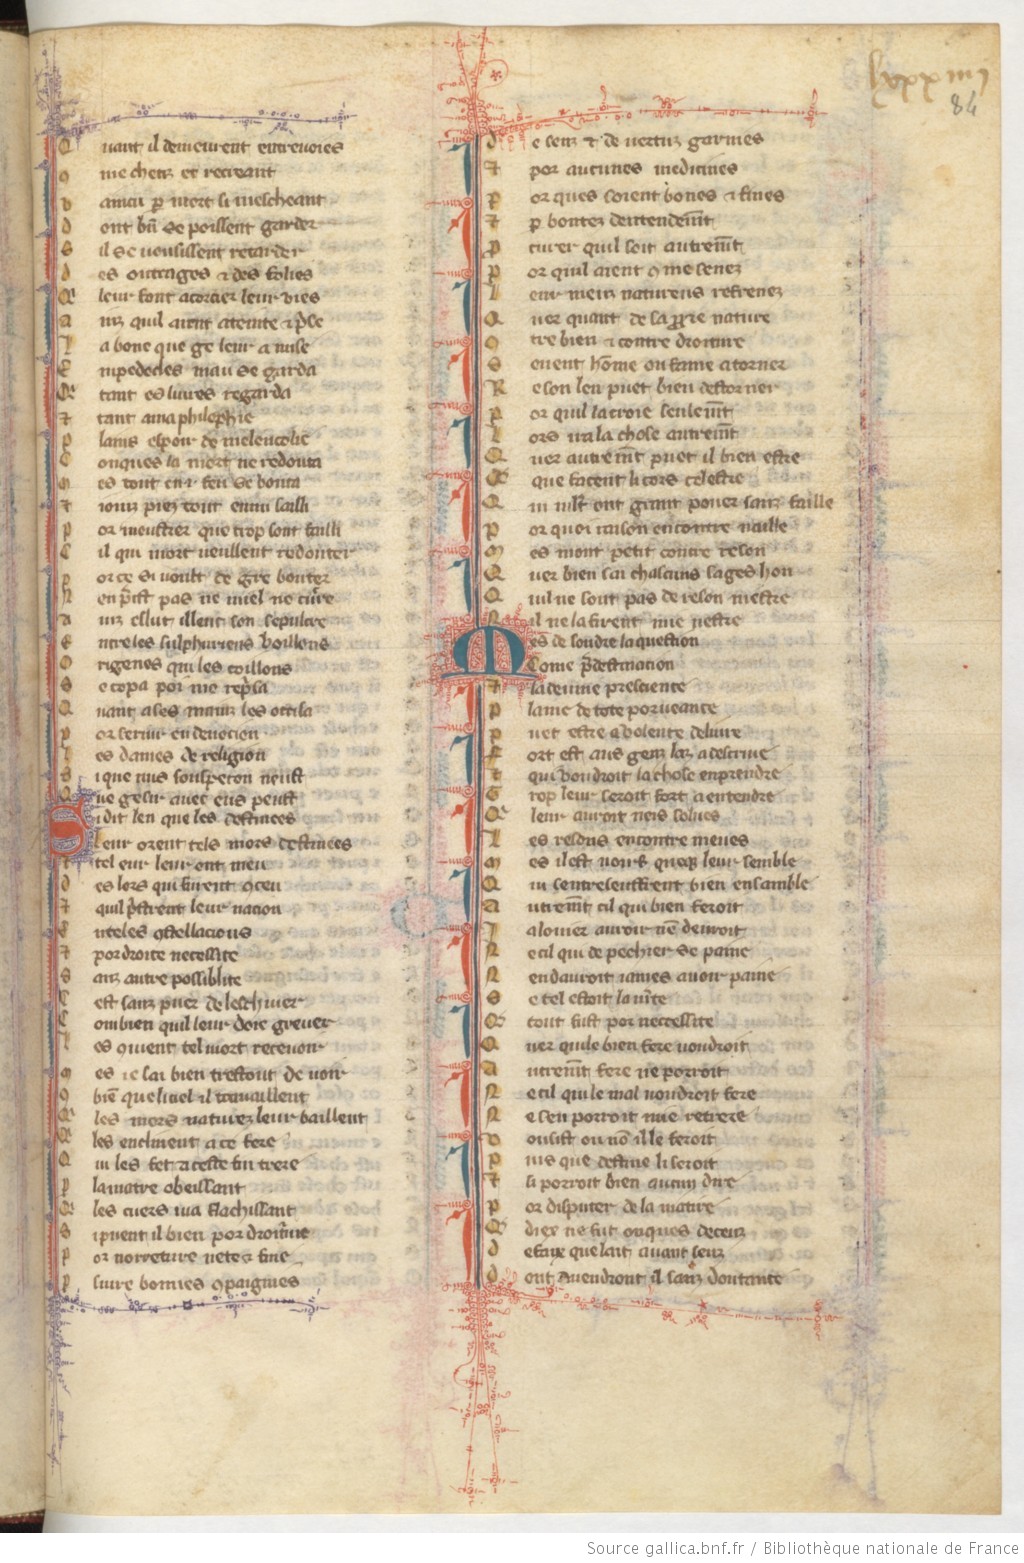 lxxxiiij
84
Quant il demeurent entrevoies
ome chetz et recreant
vamau p mort si mescheant
dont bñ se poissent garder
Sil se vousissent retarder
des outrages ⁊ des folies
Qui leur font acorcier leur vies
ainz quil aient ateinte ⁊ prise
la bone que ge leur a mise
Empedocles mau se garda
Qui tant es livres regarda
⁊ tant ama philosophie
plains espoir de melencolie
Conques la mort ne redouta
mes tout en .i. feu se bouta
⁊ ioinz piez tout ennz sailli
por monstrer que trop sont failli
Cil qui mort veullent redouter
por ce si voult de gre bouter
Nen prist pas ne miel ne
ainz eslut illeuc son sepulcre
Entre les sulphuriens boillons
Origenes qui les coillons
Se copa poi me reprisa
Quant a ses mainz les
por servir en devocion
les dames de religion
Si que nus souspeçon neust
Que gesir avec eus peust
Si dit len que les destinees
leur orent tels mors destinees
⁊ tel eur leur ont meu
des lors qui furent conceu
⁊ quil pristrent leur nacion
En teles constellacions
⁊ por droite necessite
Sanz autre possiblite
Cest sanz poer de leschiver
Combien quil leur doie grever
les convient tel mort recevoir
mes ie sai bien trestout de voir
Combien que li ciel i travaillent
Qui les mors naturez leur baillent
Qui les enclinent a ce fere
Qui les fet a ceste fin trere
por la matre obeissant
Qui les cuers iva flachissant
Si puent il bien por doctrine
por norreture nete ⁊ fine
por sivre bonnes compaignies
de senz ⁊ de vertuz garnies
⁊ por aucunes medicines
por ques soient bones ⁊ fines
⁊ p bontez dentendemt
procurer quil soit autremt
por quil aient come senez
leur meurs naturens refrenez
Quer quant de sa propre nature
Contre bien ⁊ contre droiture
Se veut home ou fame atorner
Reson len puet bien destorner
por quil la croie seulemt
lors ira la chose autremt
Quer autremt puet il bien estre
Que que facent li cors celestre
Qui mlt ont grant pouer sanz faille
por quoi raison encontre naille
mes nont petit contre reson
Quer bien sai chascuns sages hon
Quil ne sont pas de reson mestre
Nil ne la firent mie nestre
Mes de soudre la question
Come predestinacion
⁊ la devine prescience
plaine de tote porveance
puet estre a volente delivre
Fort est aus genz laiz a descrivre
⁊ qui voudroit la chose enprendre
Trop leur seroit fort a entendre
Qui leur auroit neis solues
les resons encontre meues
mes il est voirs que quil leur semble
Qui sentreseuffrent bien ensamble
autremt cil qui bien feroit
la louier auoir nen devroit
Ne cil qui de pechier se paine
Nen dauroit iames auoir paine
Se tel estoit la verite
Que tout fust por necessite
Quer qui le bien fere voudroit
autremt fere ne porroit
Ne cil qui le mal voudroit fere
Ne sen porroit mie retrere
vousist ou non il le feroit
puis que destine li seroit
⁊ si porroit bien aucun dire
por disputer de la matire
Que diex ne fut onques deceuz
des faiz que lait avant seuz
dont avendront il sanz doutance
Source gallica.bnf.fr / Bibliothèque nationale de France